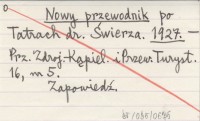 Nowy przewodnik po
Tatrach dr. Świerza. 1927.—
Prz. Zdroj.-Kąpiel. i Przew. Turyst.
16, nr 5.
Zapowiedź.